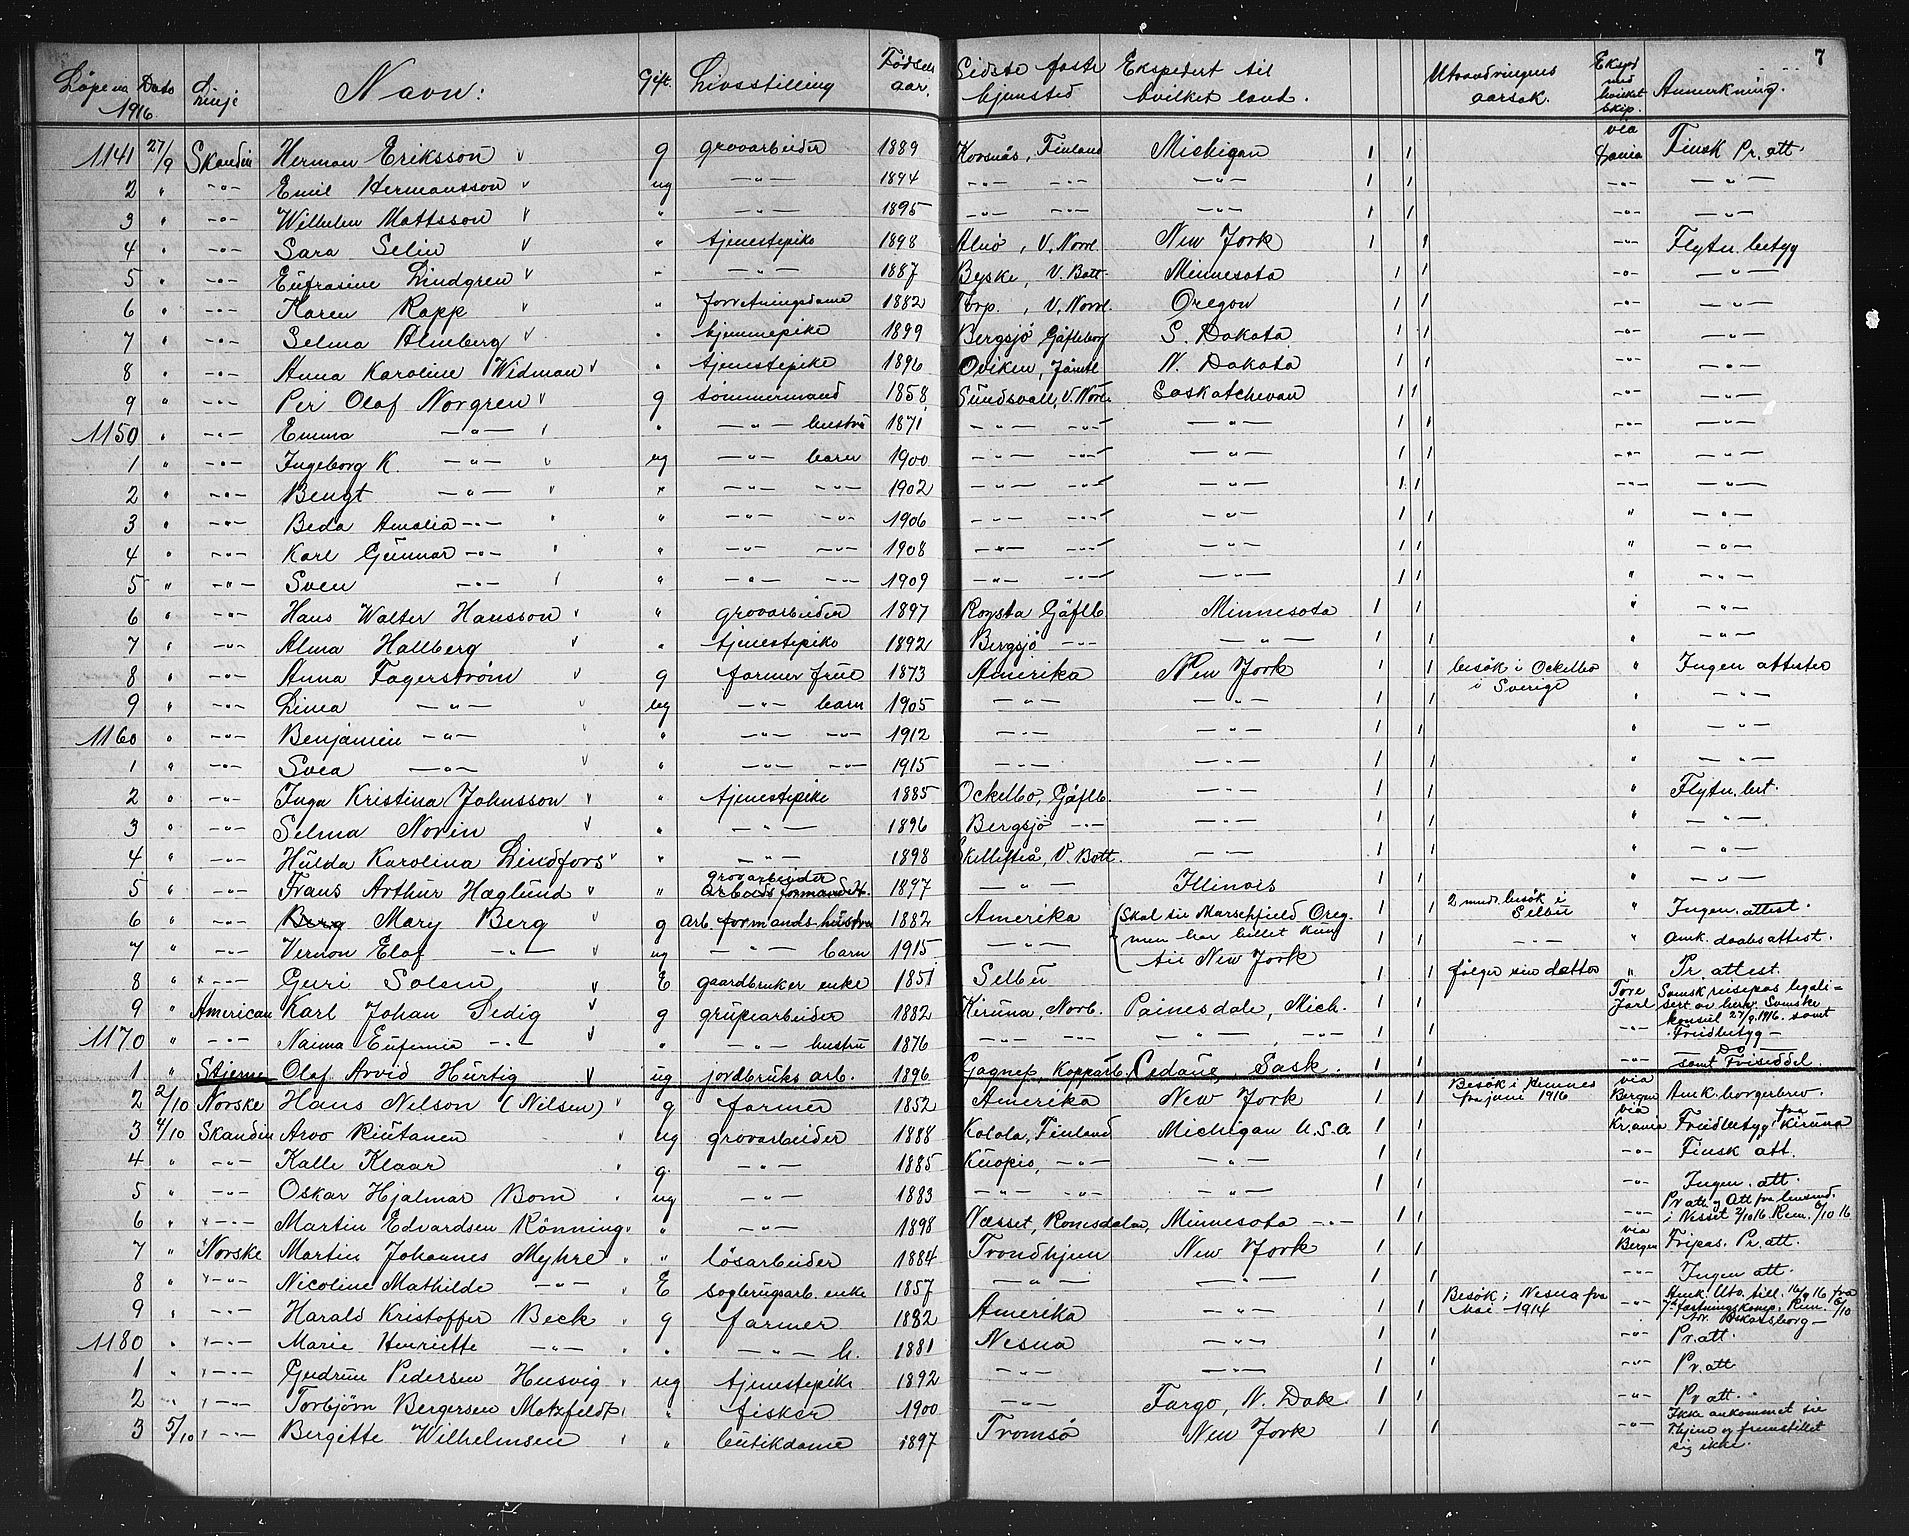 7
Löpe no Dato Linje Navn: Gift. Livsstilling Födsels aar. Sidste faste hjemsted Ekspedert til hvilket land. Utvandringens aarsak. Eksped med hvilket skip. Anmerkning.
1916
1141 27/9 Skandin Herman Eriksson g grovarbeider 1889 Korsnäs, Finland Michigan 1 1 via Xania Finsk Pr. att.
2 " -"- Emil Hermansson ug -"- 1894 -"- -"- -"- 1 1 -"- -"-
3 " -"- Wilhelm Mattsson " -"- 1895 -"- -"- -"- 1 1 -"- -"-
4 " -"- Sara Selin " tjenestepike 1898 Alnö, V. Norrl. New York 1 1 -"- Flytn. betyg
5 " -"- Eufrasine Lindgren " -"- 1887 Byske, V. Bott. Minnesota 1 1 -"- -"-
6 " -"- Karen Rapp " forretningsdame 1882 Torp, V. Norrl. Oregon 1 1 -"- -"-
7 " -"- Selma Almberg " hjemmepike 1899 Bergsjö Gäfleborg S. Dakota 1 1 -"- -"-
8 " -"- Anna Karoline Widman " tjenestepike 1896 Oviken, Jämtl N. Dakota 1 1 -"- -"-
9 " -"- Per Olof Norgren g tömmermand 1858 Sundsvall, V. Norrl. Saskatchevan 1 1 -"- -"-
1150 " -"- Emma -"- " -"- hustru 1871 -"- -"- -"- 1 1 -"- -"-
1 " -"- Ingeborg K. -"- ug -"- barn 1900 -"- -"- -"- 1 1 -"- -"-
2 " -"- Bengt -"- " -"- -"- 1902 -"- -"- -"- 1 1 -"- -"-
3 " -"- Beda Amalia -"- " -"- -"- 1906 -"- -"- -"- 1 1 " -"-
4 " -"- Karl Gunnar -"- " -"- -"- 1908 -"- -"- -"- 1 1 " -"-
5 " -"- Sven -"- " -"- -"- 1909 -"- -"- -"- 1 1 " -"-
6 " -"- Hans Walter Hansson " grovarbeider 1897 Rogsta Gäflb. Minnesota 1 1 " -"-
7 " -"- Alma Hallberg " tjenestepike 1892 Bergsjö -"- -"- 1 1 " -"-
8 " -"- Anna Fagerström g farmer frue 1873 Amerika New York 1 1 besök i Ockelbo i Sverige " Ingen attester
9 " -"- Linea -"- ug -"- barn 1905 -"- -"- 1 1 " -"-
1160 " -"- Benjamin -"- " -"- -"- 1912 -"- -"- 1 1 " -"-
1 " -"- Svea -"- " -"- -"- 1915 -"- -"- 1 1 " -"-
2 " -"- Inga Kristina Johnsson " tjenestepike 1885 Ockelbo, Gäflb. -"- 1 1 " Flytn. bet.
3 " -"- Selma Norin " -"- 1896 Bergsjö -"- -"- 1 1 " -"-
4 " -"- Hulda Karolina Lindfors " -"- 1898 Skellefteå, V. Bott. -"- 1 1 " -"-
5 " -"- Frans Arthur Hæglund " grovarbeider 1897 -"- Illinois 1 1 " -"-
6 " -"- Mary Berg g arb. formands hustru 1882 Amerika (Skal til Marschfield Oreg. 1 1 2 mndr. besök i Selbu " Ingen attest.
7 " -"- Vernon Elof -"- ug -"- barn 1915 -"- men har billet kun 1 1 -"- " Amk. daabsattest.
8 " -"- Guri Solem E gaardbruker enke 1851 Selbu til New York 1 1 fölger sin datter " Pr. attest.
9 " American Karl Johan Sedig g grubearbeider 1882 Kiruna, Norb. Painesdale, Mich. 1 1 Tore Jarl Svensk reisepas legalisert av herv. Svenske konsul 27/9.1916. samt
1170 " -"- Naima Eufemia -"- " -"- hustru 1876 -"- -"- 1 1 -"- Freidbetyg -
1 " Stjerne Olof Arvid Hurtig ug jordbruks arb. 1896 Gagnef, Kopparb. Sask. 1 1 -"- Do samt Friseddel.
2 2/10 Norske Hans Nelson (Nilsen) g farmer 1852 Amerika New York 1 1 Besök i Hemnes fra juni 1916 via Bergen Amk. borgerbrev.
3 4/10 Skandin Arvo Riutanen ug grovarbeider 1888 Kolola, Finland Michigan U.S.A 1 1 via Kr.ania Freidbetyg fra Kiruna
4 " -"- Kalle Klaar g. -"- 1885 Kuopio, -"- -"- 1 1 -"- Finsk att.
5 " -"- Oskar Hjalmar Bom ug -"- 1883 -"- -"- -"- 1 1 -"- Ingen. att.
6 " -"- Martin Edvardsen Rönning " -"- 1898 Næsset, Romsdalen Minnesota -"- 1 1 -"- Pr att og Att fra lensmd. i Nesset 2/10 16 Rem. 6/10 16
7 " Norske Martin Johannes Myhre " lösarbeider 1884 Trondhjem New York 1 1 via Bergen Fripas. Pr. att.
8 " -"- Nicoline Mathilde -"- E sagbrugsarb. enke 1857 -"- -"- 1 1 -"- Ingen att.
9 " -"- Harald Kristoffer Beck g farmer 1882 Amerika -"- 1 1 Besök i Nesna fra Mai 1914 -"- Amk. Utv. till. 16/9 16 fra
1180 " -"- Marie Henriette -"- " -"- h. 1881 Nesna -"- 1 1 -"- Pr. att.
1 " -"- Gudrun Pedersen Husvig ug tjenestepike 1892 -"- -"- 1 1 -"- Pr. att
2 " -"- Torbjörn Bergersen Motzfeldt " fisker 1900 -"- Fargo, N. Dak 1 1 -"- Pr att.
3 5/10 -"- Bergitte Wilhelmsen " butikdame 1897 Tromsö New York 1 1 -"- Ikke ankommet til T.hjem og fremstillet sig ikke.